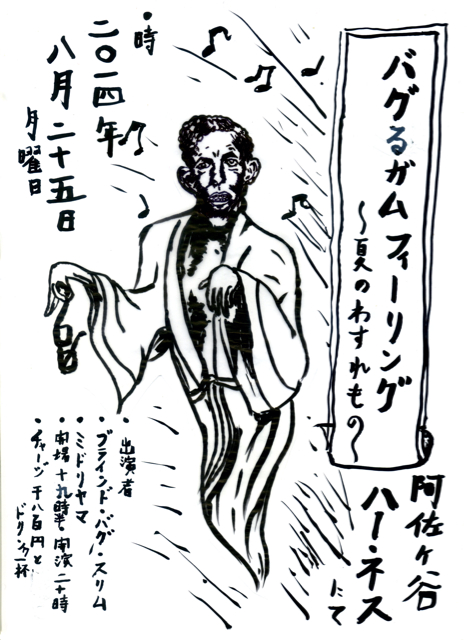 バグるガムフィーリング
〜夏のわすれもの〜
阿佐ヶ谷
ハーネス
にて
・時
二〇一四年
八月二十五日
月曜日
・出演者
・ブラインド・バグ・スリム
・ミドリヤマ
・開場十九時半開演二十時
・チャージ千八百円と
ドリンク一杯